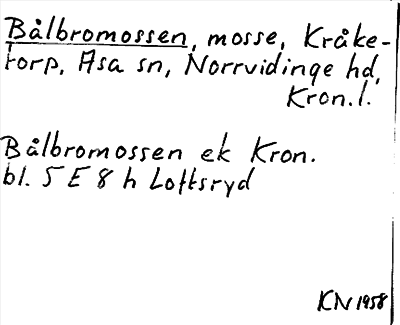 Bålbromossen, mosse, Kråke-
torp, Asa sn, Norrvidinge hd,
Kron. l.
Bålbromossen ek Kron.
bl. 5 E 8 h Loftsryd
KN 1958